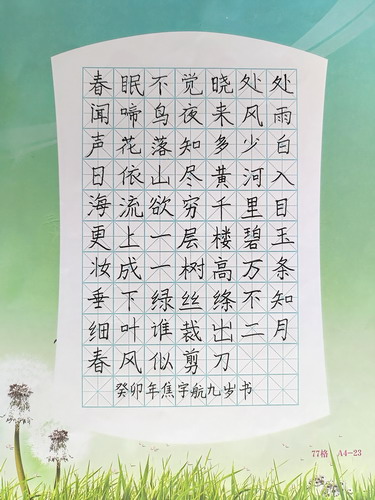 春眠不觉晓处处
闻啼鸟夜来风雨
声花落知多少白
日依山尽黄河入
海流欲穷千里目
更上一层楼碧玉
妆成一树高万条
垂下绿丝绦不知
细叶谁裁出二月
春风似剪刀
癸卯年焦宇航九岁书
77格 A4-23